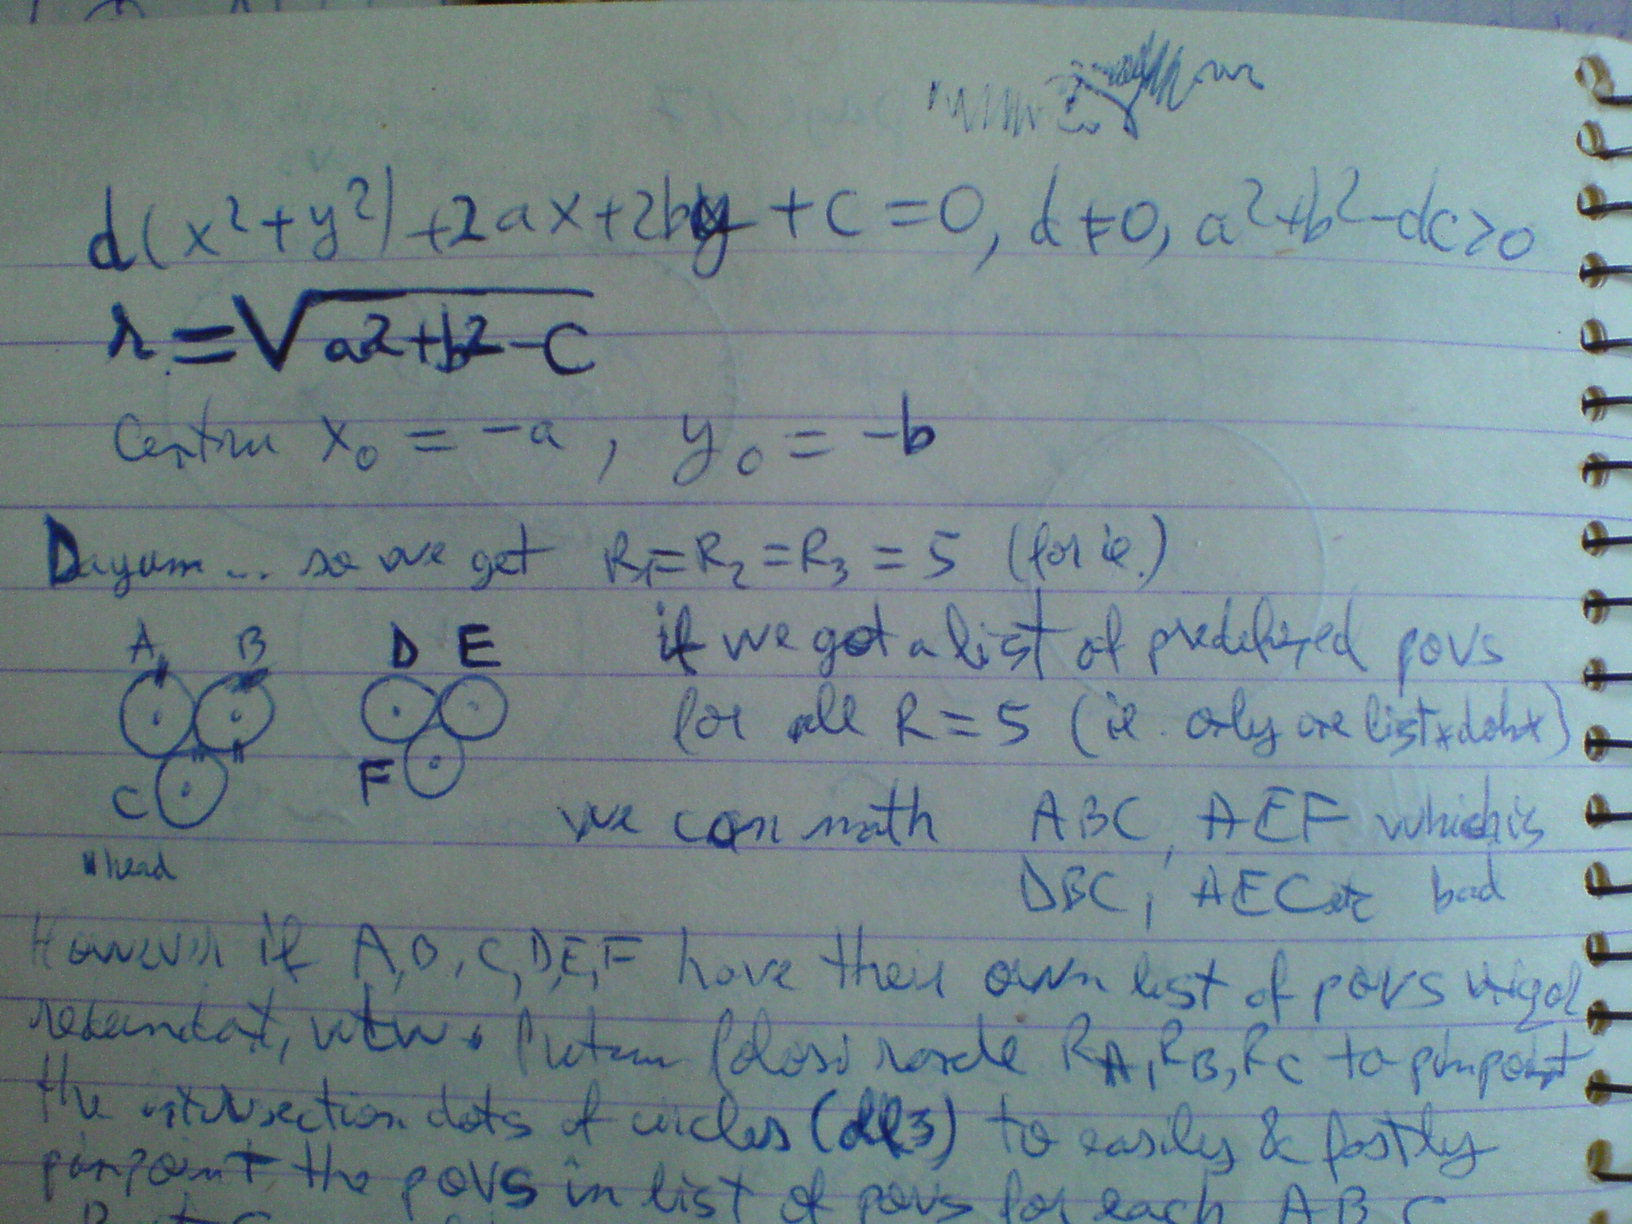 d(x²+y²)+2ax+2by+c=0, d≠0, a²+b²-dc>0
r=√a²+b²-c
Centru x₀=-a, y₀=-b
Dayum... so we get R₁=R₂=R₃=5 (for ie.)
A B D E if we got a list of predefined povs
for all R=5 (ie. only one list *doh*)
C F we can math ABC, AEF which is
head DBC, AEC etc bad
However if A,B,C,D,E,F have their own list of povs
, wtw. Putem folosi razele RA,RB,RC to pinpoint
the intersection dots of circles (all 3) to easily & fastly
pinpoint the povs in list of povs for each A B C